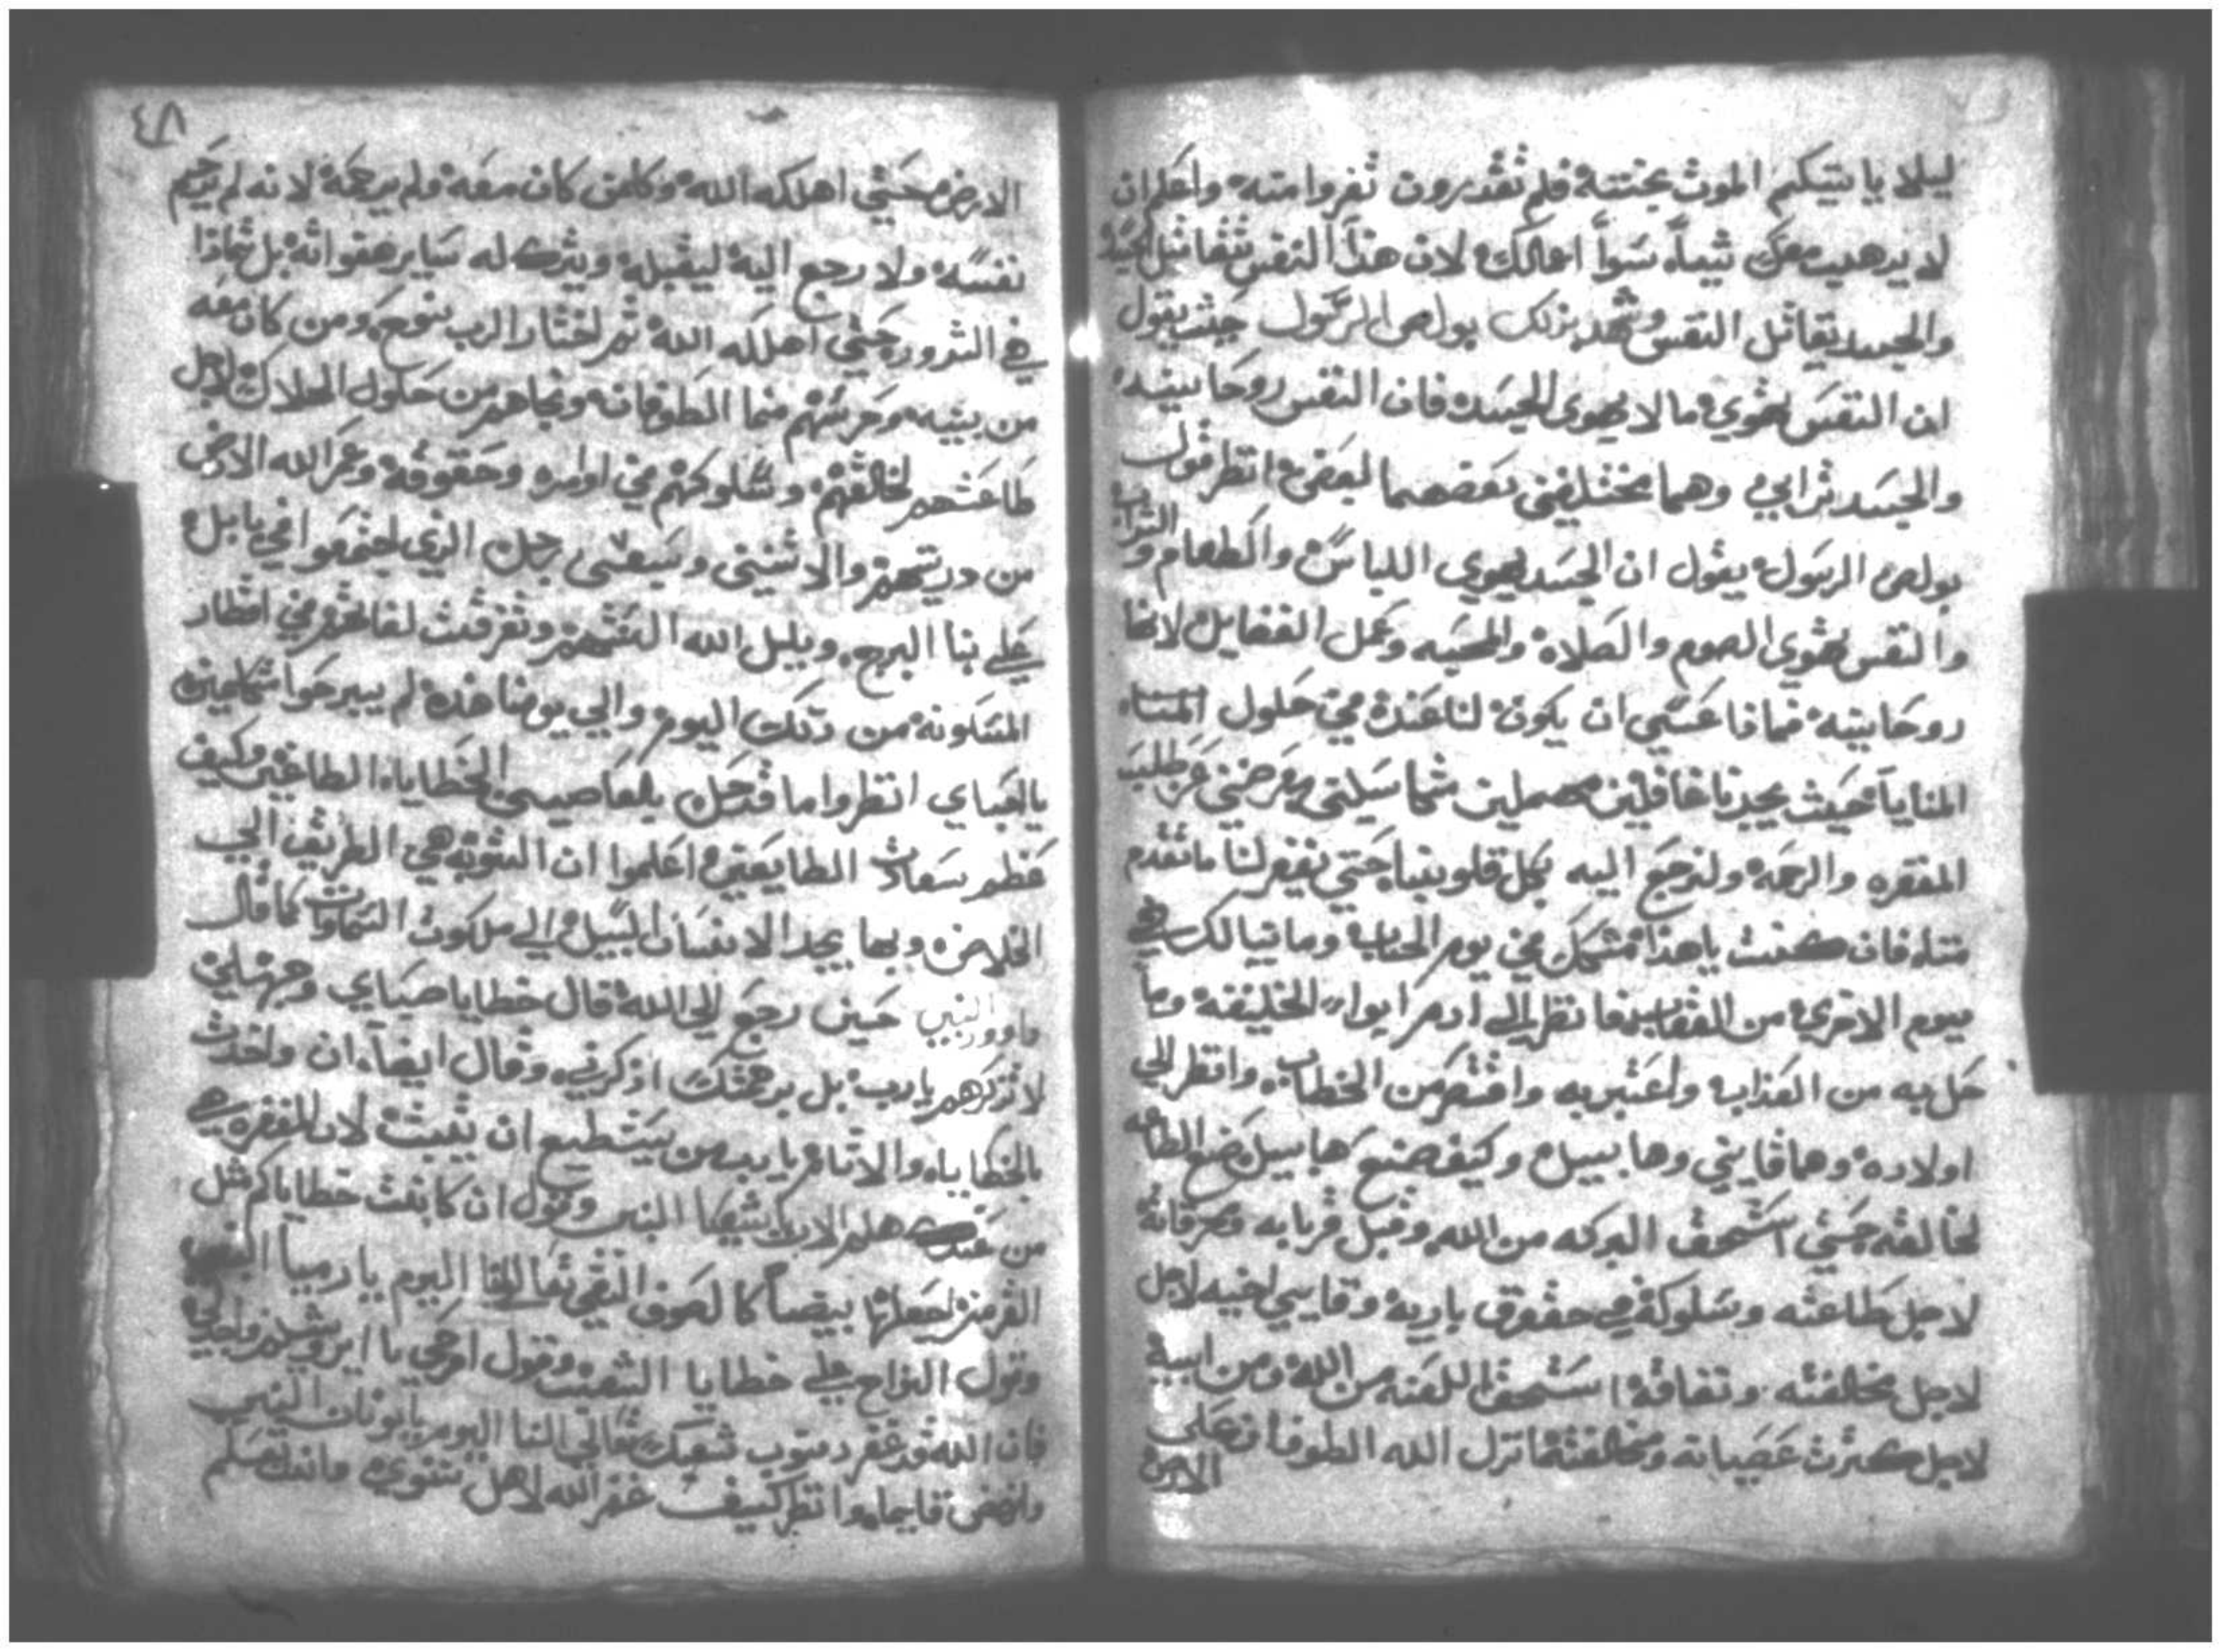 ليلا ياتيكم الموت بختتة فلم تقدرون تفروا منه واعلم ان
لا يدهب معك شيآ سوآ اعمالك لان هذا النفس تقاتل الجسد
والجسد يقاتل النفس وشهد بذلك بولص الرسول حيث يقول
ان النفس تهوي ما لا يهوى الجسد فان النفس روحانيه
والجسد ترابي وهما مختلفين بعضهما لبعض انظر قول
بولص الرسول يقول ان الجسد يهوي اللباس والطعام والشراب
والنفس تهوى الصوم والصلاة والمحبه وعمل الفضايل لانها
روحانيه فماذا عسي ان يكون لنا عندة في حلول
المنايا حيث يجدنا غافلين مهملين عن طلب
المغفره والرحمة ولنرجع اليه بكل قلوبنا حتي يغفر لنا ما تقدم
منا فان كنت يا هذا متمسك في يوم الحساب وما نيالك في
يوم الاخري من العقاب فانظر الي ادم ابوا الخليقه وما
حل به من العذاب واعتبر به واقتصر من الخطاب وانظر الي
اولاده وهما قايني وهابيل وكيف صنع هابيل صنع الطاعه
لخالقه حتي استحق البركه من الله وقبل قربانه وصرفاته
لاجل طاعته وسلوكة في حقوق باريه وقايين اخيه لاجل
لاجل مخالفته ونفاقه استحق اللعنه من الله ومن ابيه
لاجل كثرت عصيانه ومخالفته انزل الله الطوفان على
الارض
٤٨
الارض حتي اهلكه الله وكلمن كان معه ولم يرحمه لانه لم يرحم
نفسه ولا رجع اليه ليقبله ويترك له ساير هفواته بل تمادا
في الشرور حتي اهلكه الله ثم اختار الرب بنوح ومن كان معه
من بنيه وحرسهم من ما الطوفان ونجاهم من حلول الهلاك لاجل
طاعتهم لخالقهم وسلوكهم في اوامره وحقوقه وعمر الله الارض
من دريتهم والاثنين وسبعين رجل الذي اجتمعوا في بابل
علي بنا البرج وبلبل الله السنتهم وتفرقت لغاتهم في اقطار
المسكونة من ذلك اليوم والي يومنا هذه لم يبرحوا
يا احباي انظروا ما قد حل بالعاصيين الخطاياه الطاغين وكيف
عظم سعادت الطايعين اعلموا ان التوبه هي الطريق الي
الخلاص وبها يجد الانسان السبيل الي ملكوت السماوات كما قال
داوود النبي حين رجع الي الله قال خطايا صباي وجهلي
لا تذكرهم يا رب بل برحمتك اذكرني وقال ايضآ ان واخدت
بالخطاياه والاتام يا رب من يستطيع ان يثبت لان المغفره هي
من عندك هلم الان يا شعيا النبي وقول ان كانت خطاياكم مثل
القرمز اجعلها بيضآ كالصوف النقي تعا اليوم يا ارميآ النبي
وقول النواح علي خطايا الشعب وقول ارجعي يا ايروشليم
فان الله قد غفر دنوب شعبك تعالي النا اليوم يا يونان النبي
وانهض قايما وانظر كيف غفر الله لاهل نينوي وانت تعلم